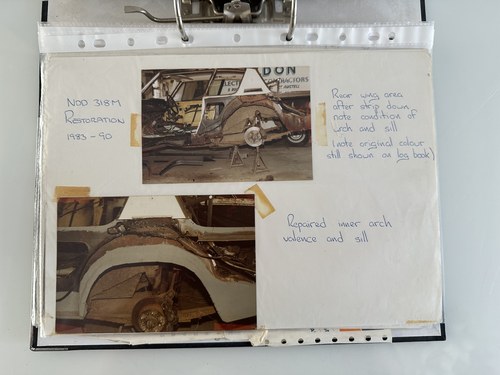 NOD 318M
RESTORATION
1983 - 90
DON
CONTRACTORS
Rear wing area
after strip down,
note condition of
arch and sill
(note original colour
still shown on log book)
Repaired inner arch
valence and sill